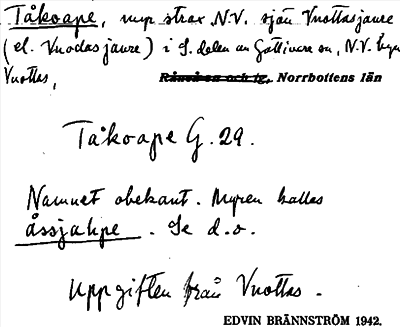 Tåkoape, myr strax N.V. sjön Vuottasjaure
(el. Vuodasjaure) i S. delen av Gällivare sn, N.V. byn
Vuottas, Råneå sn och tg. Norrbottens län
Tåkoape G. 29.
Namnet obekant. Myren kallas
åssjahpe. Se d.o.
Uppgiften från Vuottas.
EDVIN BRÄNNSTRÖM 1942.